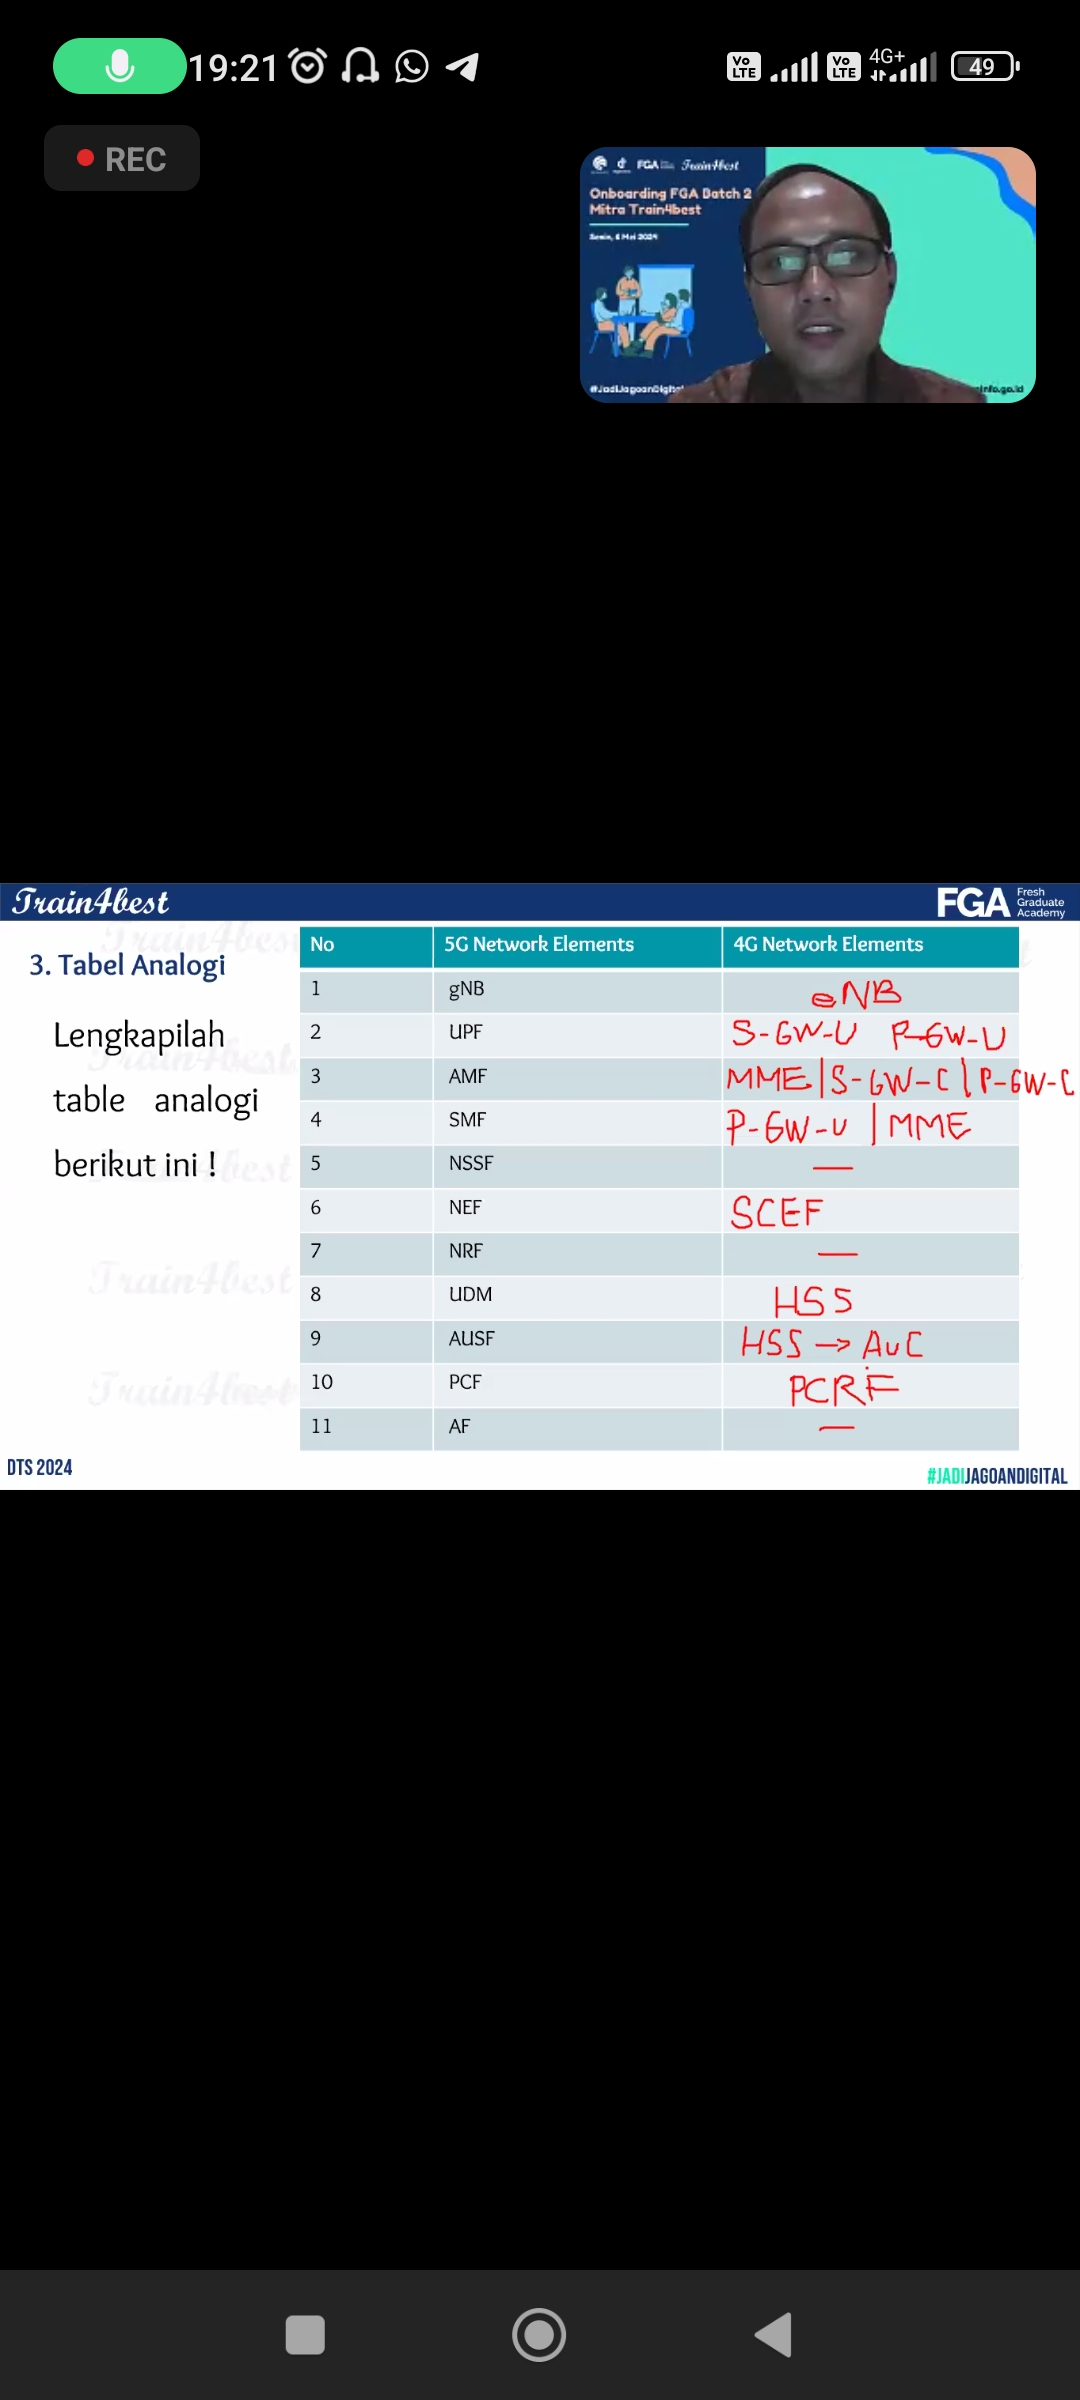 19:21 Vo LTE Vo LTE 4G+ 49
REC
FGA Train4best
Onboarding FGA Batch 2
Mitra Train4best
Senin, 6 Mei 2024
#JadiJagoanDigital
Train4best
FGA Fresh Graduate Academy
3. Tabel Analogi
Lengkapilah
table analogi
berikut ini !
No 5G Network Elements 4G Network Elements
1 gNB eNB
2 UPF S-GW-U P-GW-U
3 AMF MME | S-GW-C | P-GW-C
4 SMF P-GW-U | MME
5 NSSF —
6 NEF SCEF
7 NRF —
8 UDM HSS
9 AUSF HSS → AuC
10 PCF PCRF
11 AF —
DTS 2024
#JADIJAGOANDIGITAL